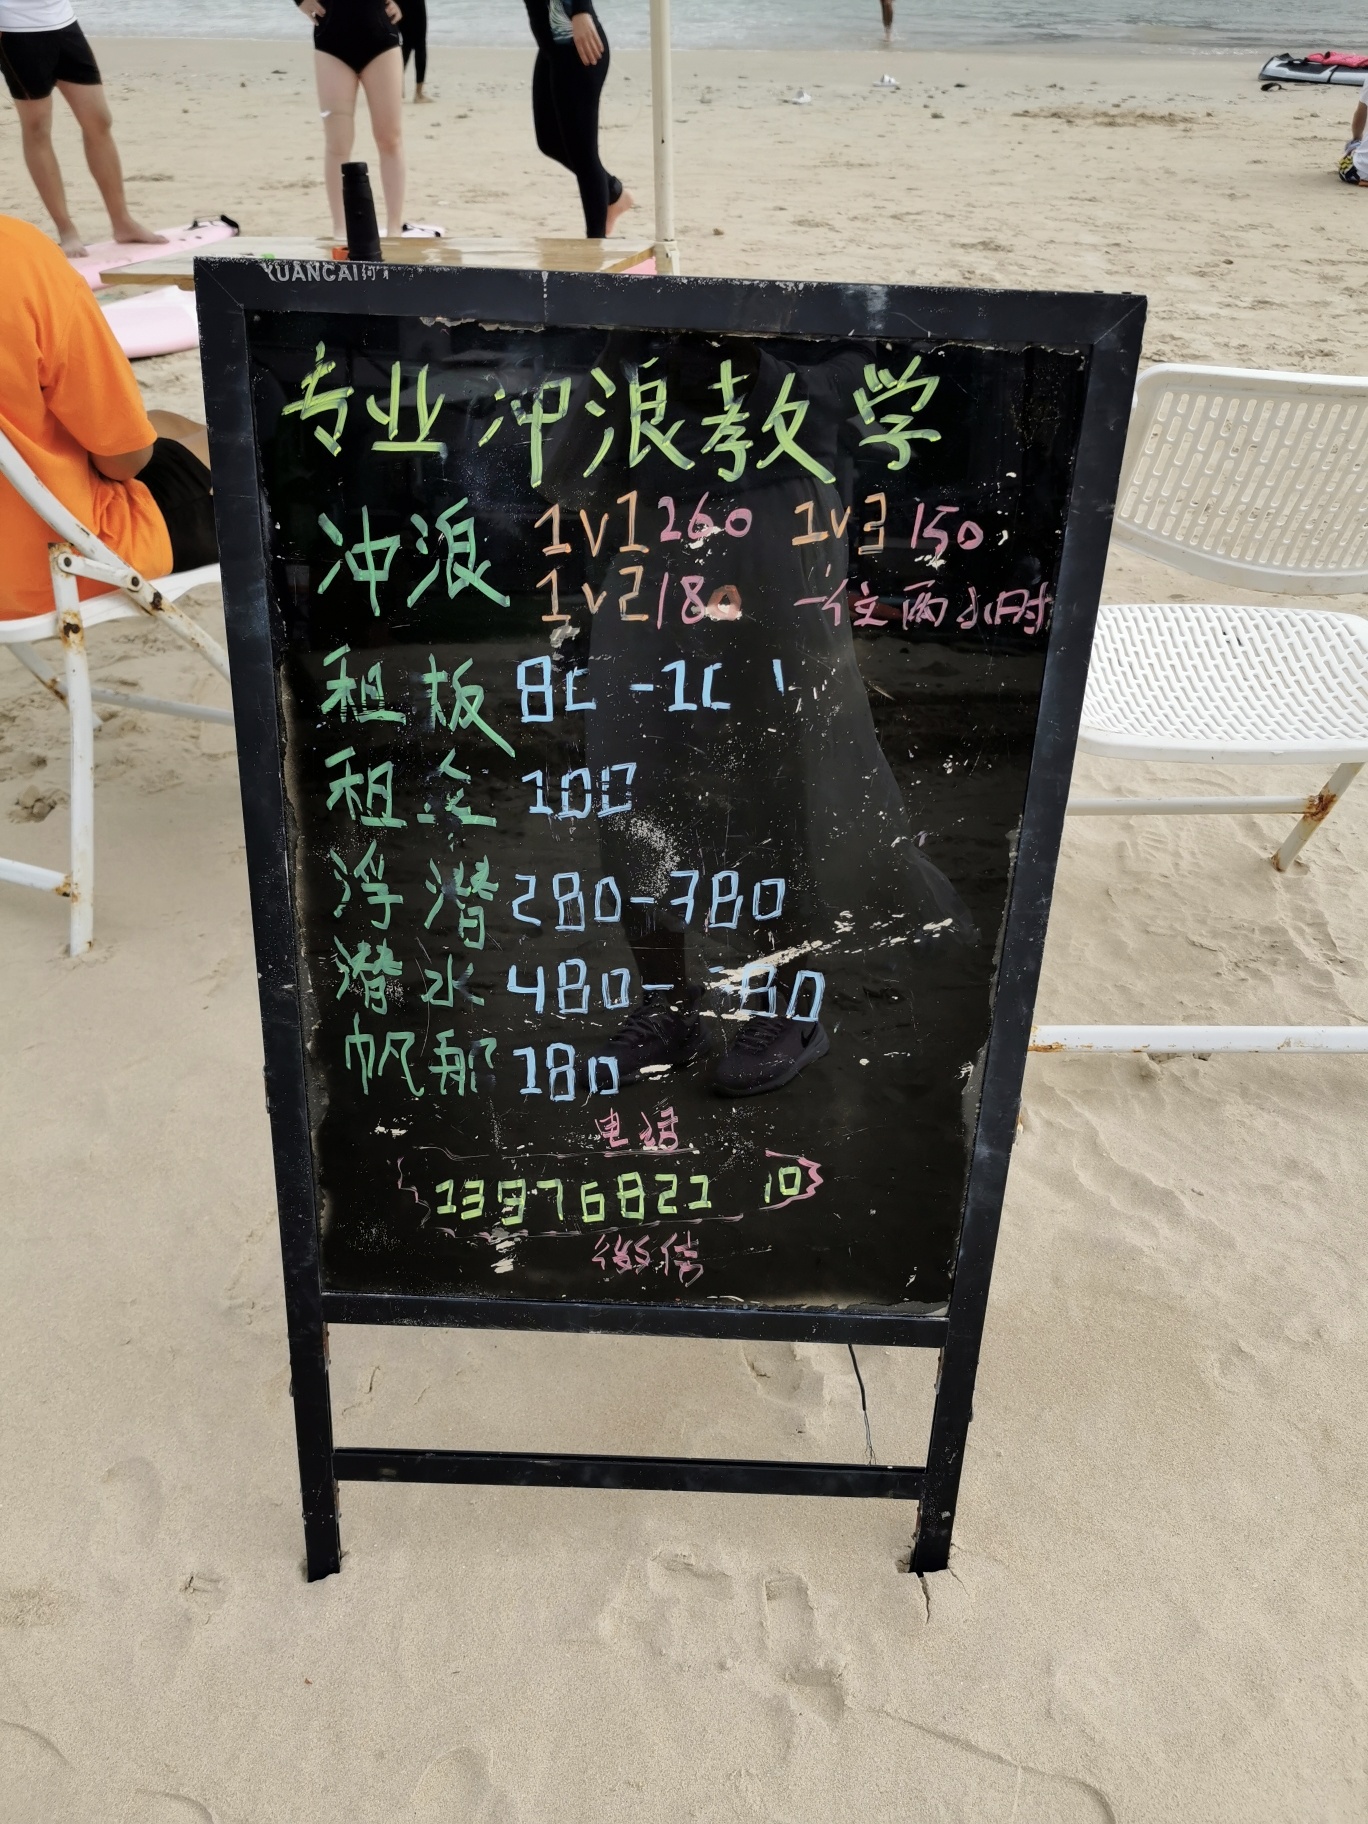 YUANCAI
专业冲浪教学
冲浪 1v1 260 1v3 150
1v2 180 一位两小时
租板 80
租 100
浮潜 280-380
潜水 480-
帆船 180
电话
1397682
微信